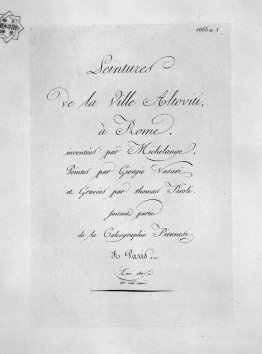 1066 a 1
Peintures
de la Ville Altoviti,
à Rome,
inventées par Michelange,
Peintes par Giorgio Vasari
et Gravées par thomas Piroli.
faisant partie
de la Calcographie Piranesi
à Paris